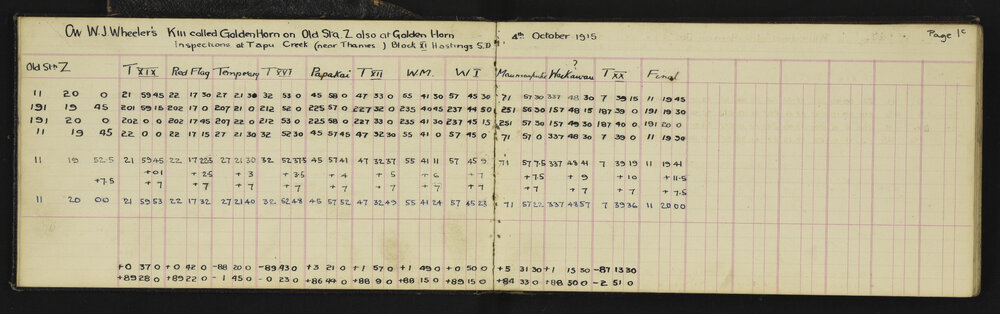 On W.J Wheeler's K111 called Golden Horn on Old Sta. Z also at Golden Horn 4th October 1915 Page 1c
Inspections at Tapu Creek (near Thames) Block XI Hastings S.D
?
Old Stn Z T XIX Red Flag Temporary T XVI Papakai T XII W.M. W I Maumaupaki T XX Final
11 20 0 21 59 45 22 17 30 27 21 30 32 53 0 45 58 0 47 33 0 55 41 30 57 45 30 71 57 30 337 48 30 7 39 15 11 19 45
191 19 45 201 59 15 202 17 0 207 21 0 212 52 0 225 57 0 227 32 0 235 40 45 237 44 50 251 56 30 157 48 15 187 39 0 191 19 30
191 20 0 202 0 0 202 17 45 207 22 0 212 53 0 225 58 0 227 33 0 235 41 30 237 45 15 251 57 30 157 49 30 187 40 0 191 20 0
11 19 45 22 0 0 22 17 15 27 21 30 32 52 30 45 57 45 47 32 30 55 41 0 57 45 0 71 57 0 337 48 30 7 39 0 11 19 30
11 19 52.5 21 59 45 22 17 22.5 27 21 30 32 52 37.5 45 57 41 47 32 37 55 41 11 57 45 9 71 57 7.5 337 48 41 7 39 19 11 19 41
+7.5 +01 +2.5 +3 +3.5 +4 +5 +6 +7 +7.5 +9 +10 +11.5
+7 +7 +7 +7 +7 +7 +7 +7 +7 +7 +7 +7.5
11 20 00 21 59 53 22 17 32 27 21 40 32 52 48 45 57 52 47 32 49 55 41 24 57 45 23 71 57 22 337 48 57 7 39 36 11 20 00
+0 37 0 +0 42 0 -88 20 0 -89 43 0 +3 21 0 +1 57 0 +1 49 0 +0 50 0 +5 31 30 +1 15 30 -87 13 30
+89 28 0 +89 22 0 -1 45 0 -0 23 0 +86 44 0 +88 9 0 +88 15 0 +89 15 0 +84 33 0 +88 50 0 -2 51 0